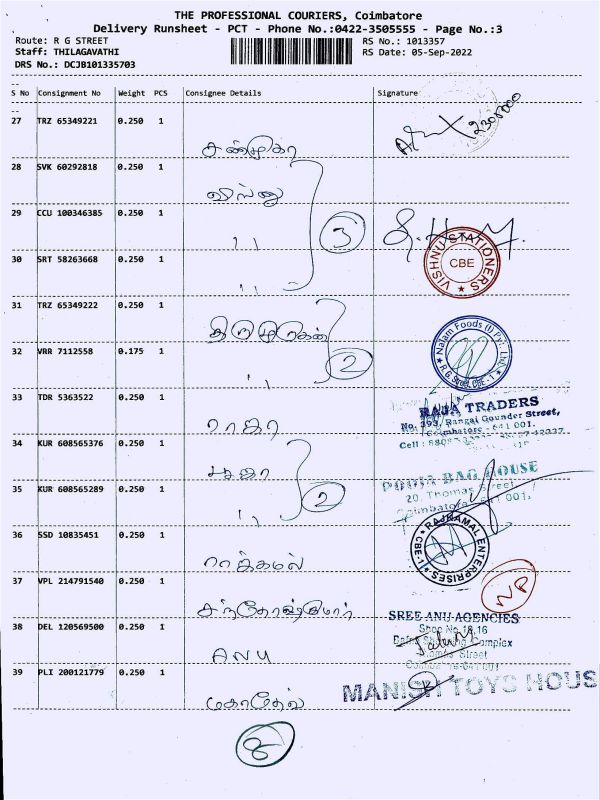 THE PROFESSIONAL COURIERS, Coimbatore
Delivery Runsheet - PCT - Phone No.:0422-3505555 - Page No.:3
Route: R G STREET
RS No.: 1013357
Staff: THILAGAVATHI
RS Date: 05-Sep-2022
DRS No.: DCJB101335703
S No Consignment No Weight PCS Consignee Details Signature
27 TRZ 65349221 0.250 1
சண்முகா
28 SVK 60292818 0.250 1
விஷ்ணு
29 CCU 100346385 0.250 1
,,
3
VISHNU STATIONERS
CBE
30 SRT 58263668 0.250 1
,,
31 TRZ 65349222 0.250 1
திருமுருகன்
Nalam Foods (I) Pvt. Ltd.
R.G. Street, CBE - 1
32 VRR 7112558 0.175 1
,,
2
33 TDR 5363522 0.250 1
ராஜா
RAJA TRADERS
No. 393, Rangai Gounder Street,
Coimbatore - 641 001.
34 KUR 608565376 0.250 1
பூஜா
POOJA BAG HOUSE
20, Thomas Street
Coimbatore - 641 001.
35 KUR 608565289 0.250 1
,,
2
36 SSD 10835451 0.250 1
ராக்கமல்
RAJKAMAL ENTERPRISES
CBE-1
37 VPL 214791540 0.250 1
சந்தோஷ்குமார்
NP
38 DEL 120569500 0.250 1
ANU
SREE ANU AGENCIES
Complex
Street
39 PLI 200121779 0.250 1
மகாதேவ்
MANISH TOYS HOUS
8